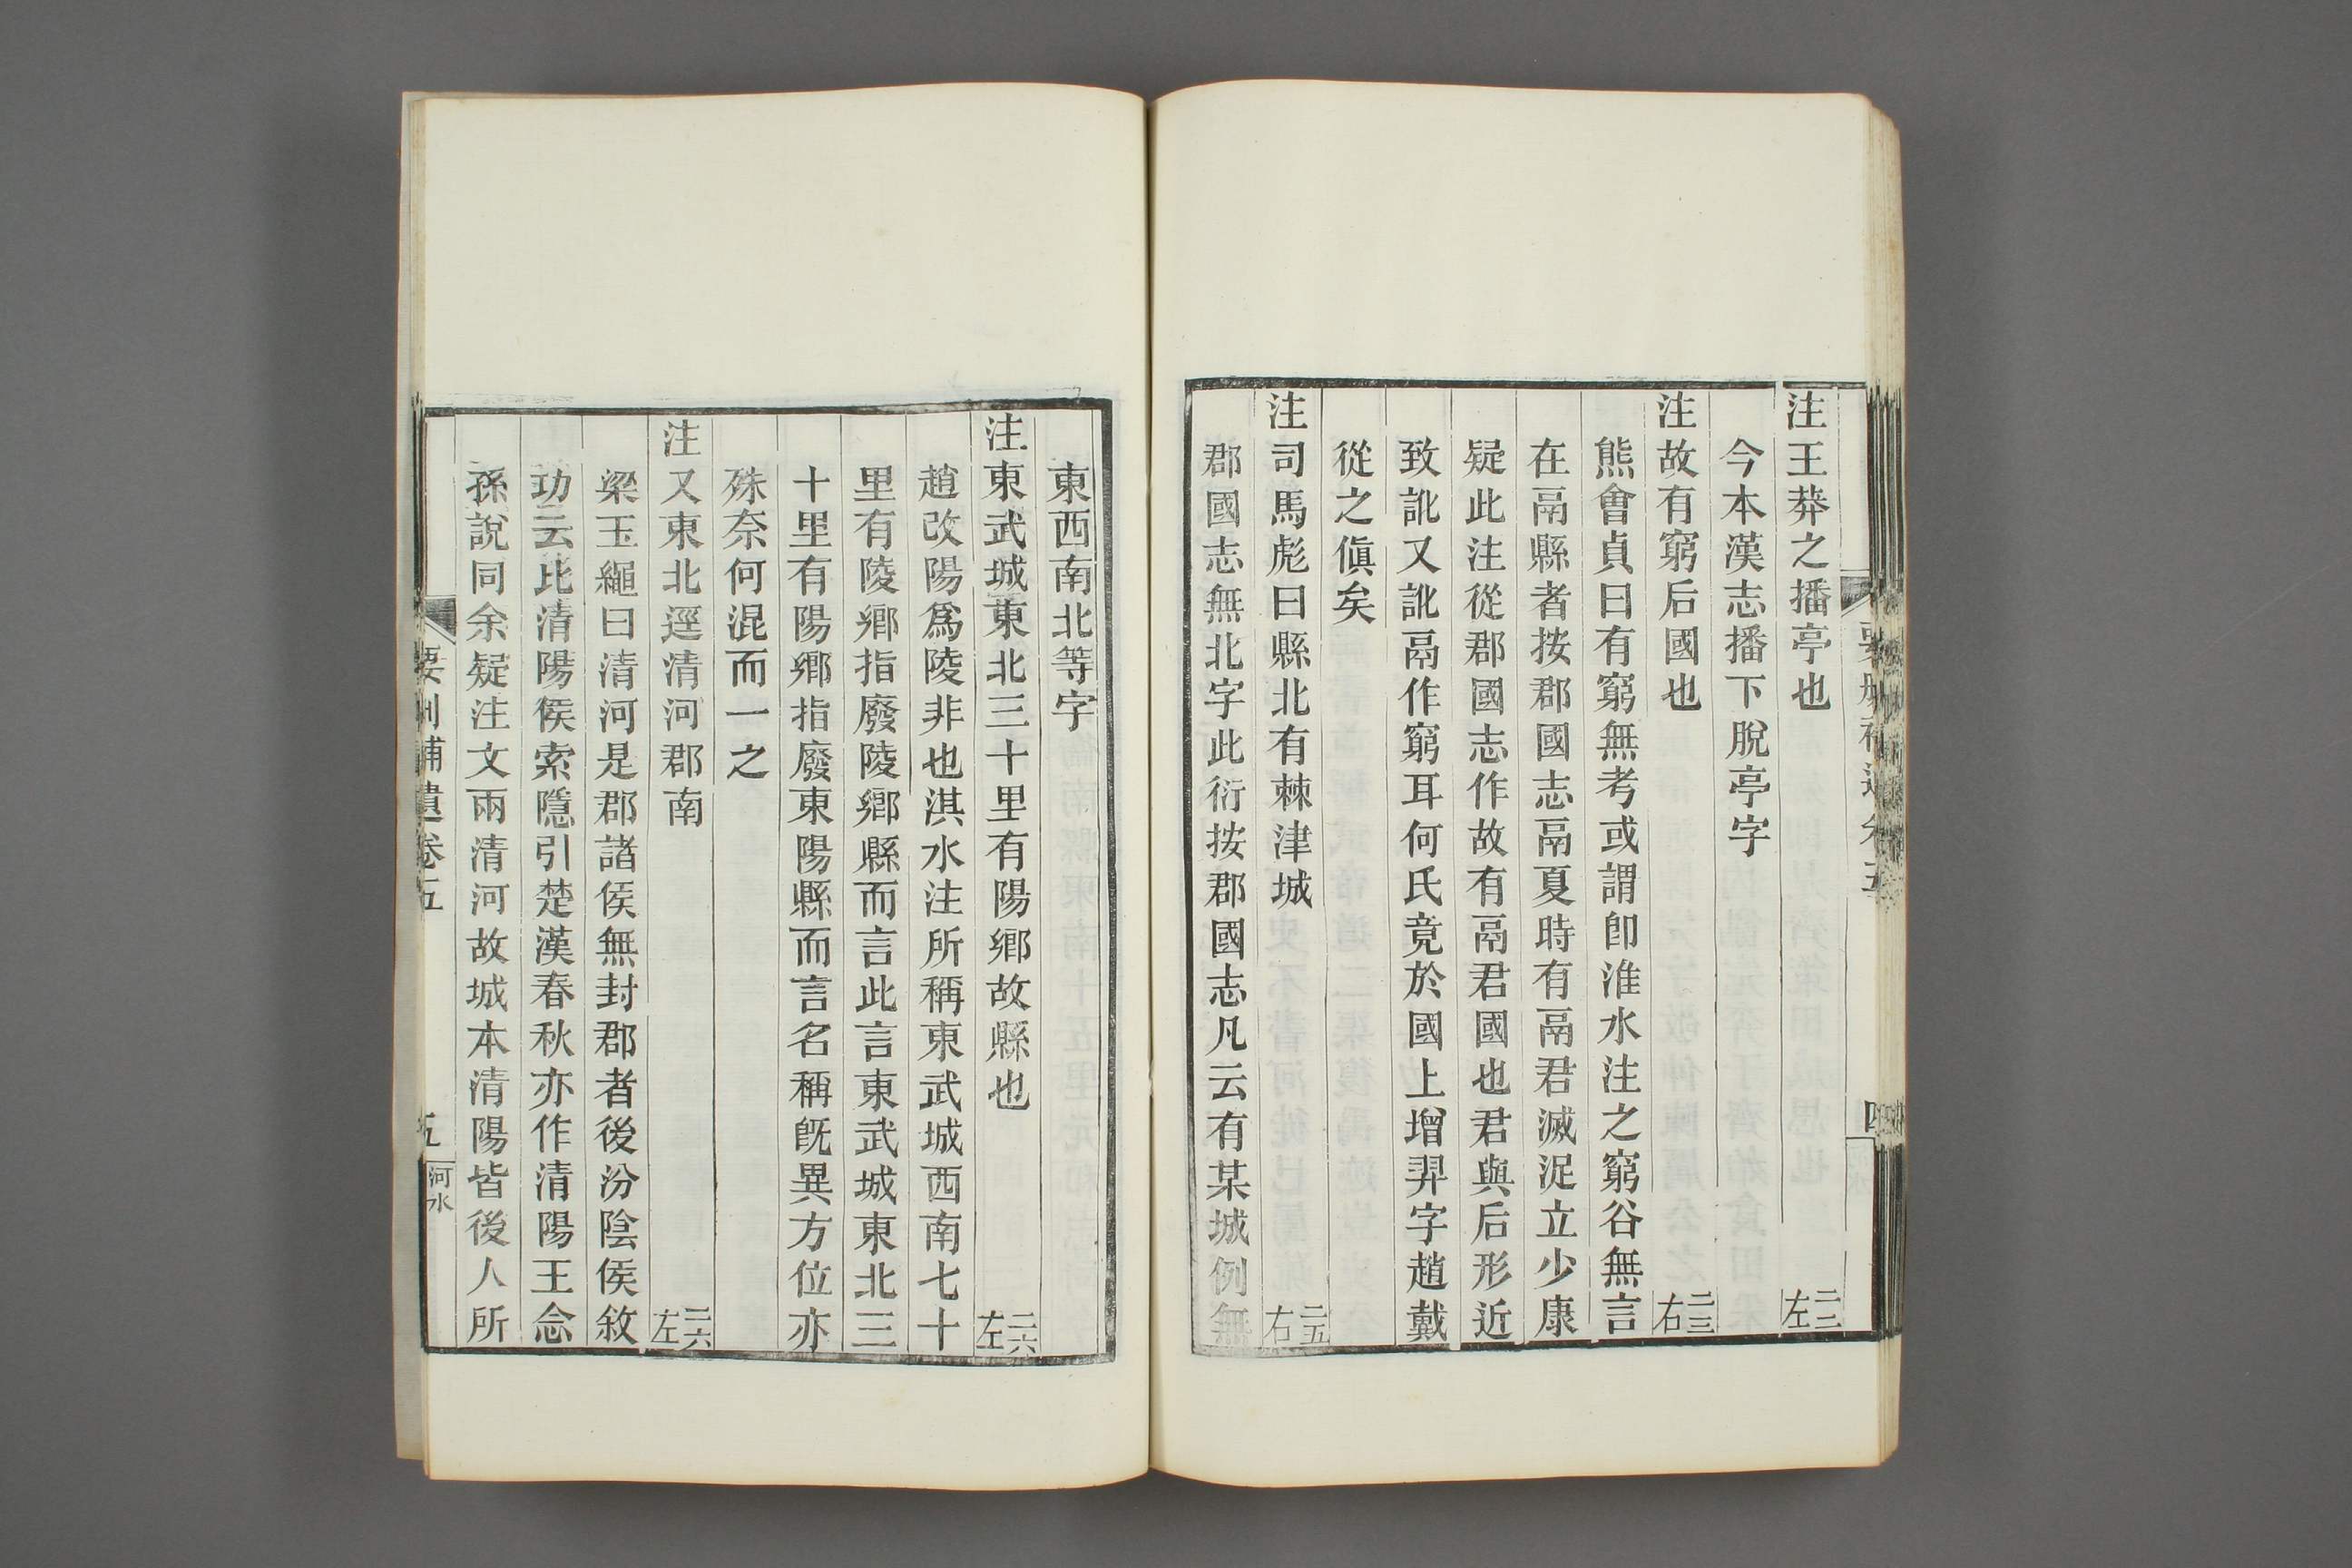 注王莽之播亭也 二二左
今本漢志播下脫亭字
注故有窮后國也 二三右
熊會貞曰有窮無考或謂卽淮水注之窮谷無言
在鬲縣者按郡國志鬲夏時有鬲君滅浞立少康
疑此注從郡國志作故有鬲君國也君與后形近
致訛又訛鬲作窮耳何氏竟於國上增羿字趙戴
從之傎矣
注司馬彪曰縣北有棘津城 二五右
郡國志無北字此衍按郡國志凡云有某城例無
東西南北等字
注東武城東北三十里有陽鄉故縣也 二六左
趙改陽爲陵非也淇水注所稱東武城西南七十
里有陵鄉指廢陵鄉縣而言此言東武城東北三
十里有陽鄉指廢東陽縣而言名稱旣異方位亦
殊奈何混而一之
注又東北逕清河郡南 二六左
梁玉繩曰清河是郡諸侯無封郡者後汾陰侯敘
功云比清陽侯索隱引楚漢春秋亦作清陽王念
孫說同余疑注文兩清河故城本清陽皆後人所
要刪補遺卷五 五 河水